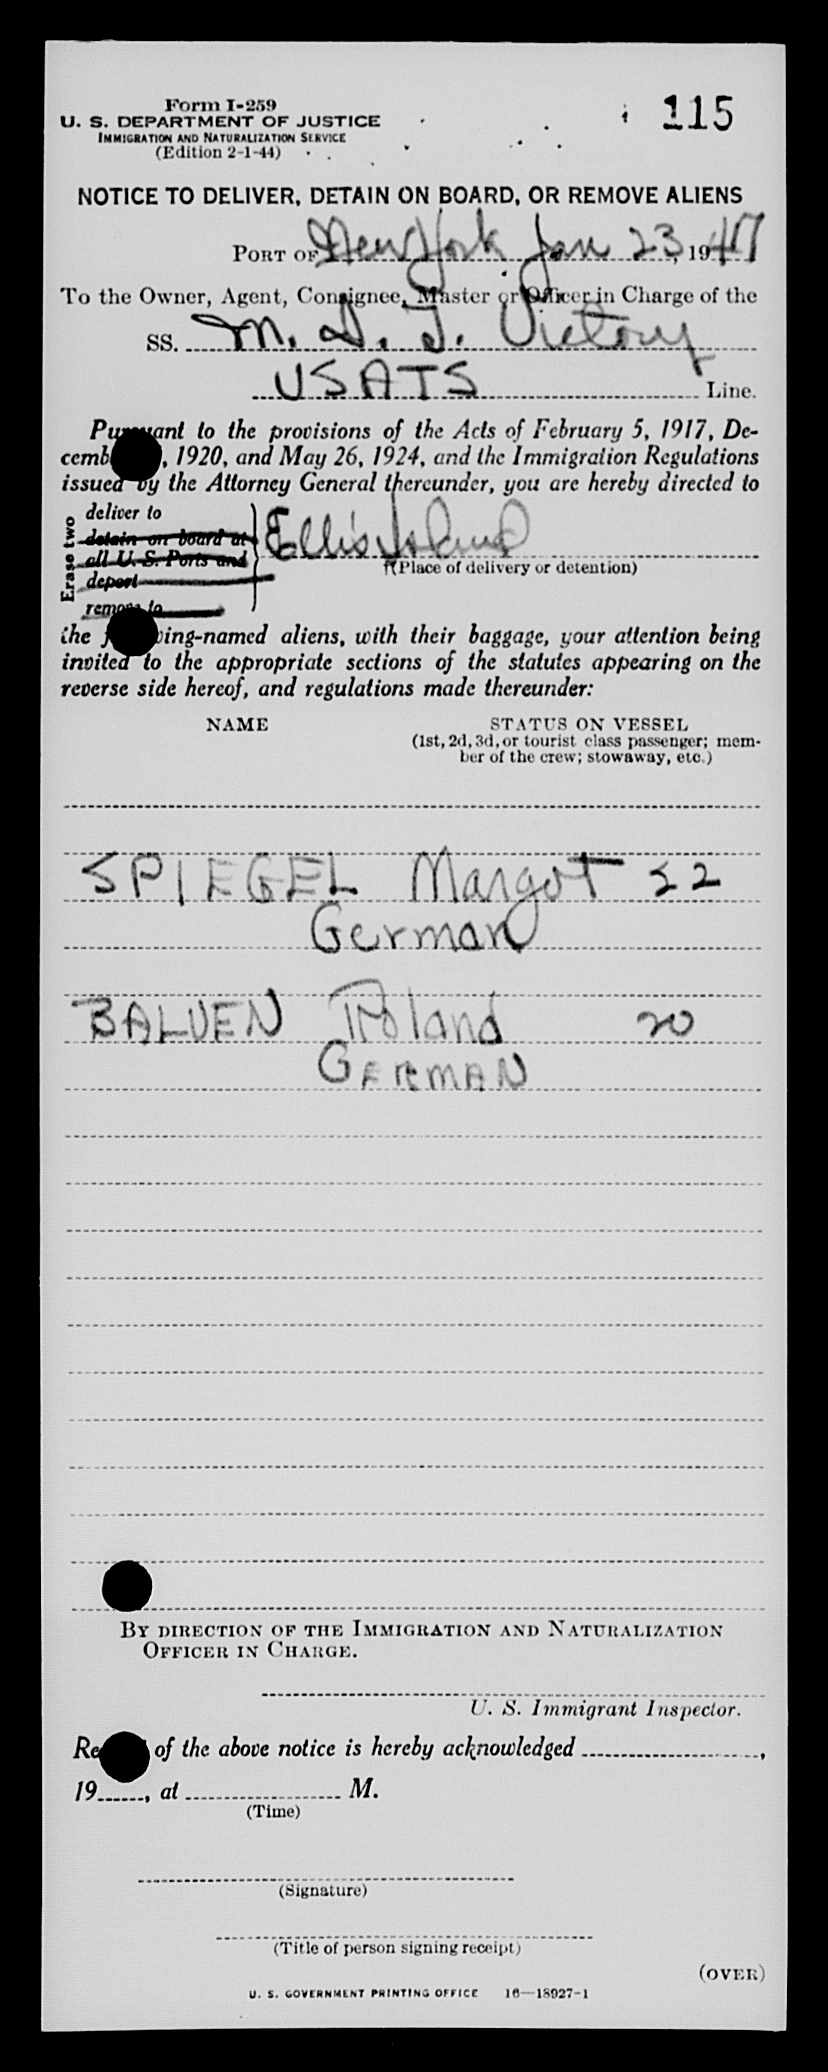 Form I-259
U. S. DEPARTMENT OF JUSTICE
IMMIGRATION AND NATURALIZATION SERVICE
(Edition 2-1-44)
115
NOTICE TO DELIVER, DETAIN ON BOARD, OR REMOVE ALIENS
PORT OF New York Jan 23, 1947
To the Owner, Agent, Consignee, Master or Officer in Charge of the
SS. M. D. J. Victory
USATS Line.
Pursuant to the provisions of the Acts of February 5, 1917, De-
cemb , 1920, and May 26, 1924, and the Immigration Regulations
issued by the Attorney General thereunder, you are hereby directed to
Erase two
deliver to
detain on board at
all U. S. Ports and
deport
remove to
Ellis Island
(Place of delivery or detention)
the f ing-named aliens, with their baggage, your attention being
invited to the appropriate sections of the statutes appearing on the
reverse side hereof, and regulations made thereunder:
NAME STATUS ON VESSEL
(1st, 2d, 3d, or tourist class passenger; mem-
ber of the crew; stowaway, etc.)
SPIEGEL Margot 22
German
BALUEN Roland 20
GERMAN
BY DIRECTION OF THE IMMIGRATION AND NATURALIZATION
OFFICER IN CHARGE.
U. S. Immigrant Inspector.
Re of the above notice is hereby acknowledged ,
19 , at M.
(Time)
(Signature)
(Title of person signing receipt)
(OVER)
U. S. GOVERNMENT PRINTING OFFICE 16—18927-1